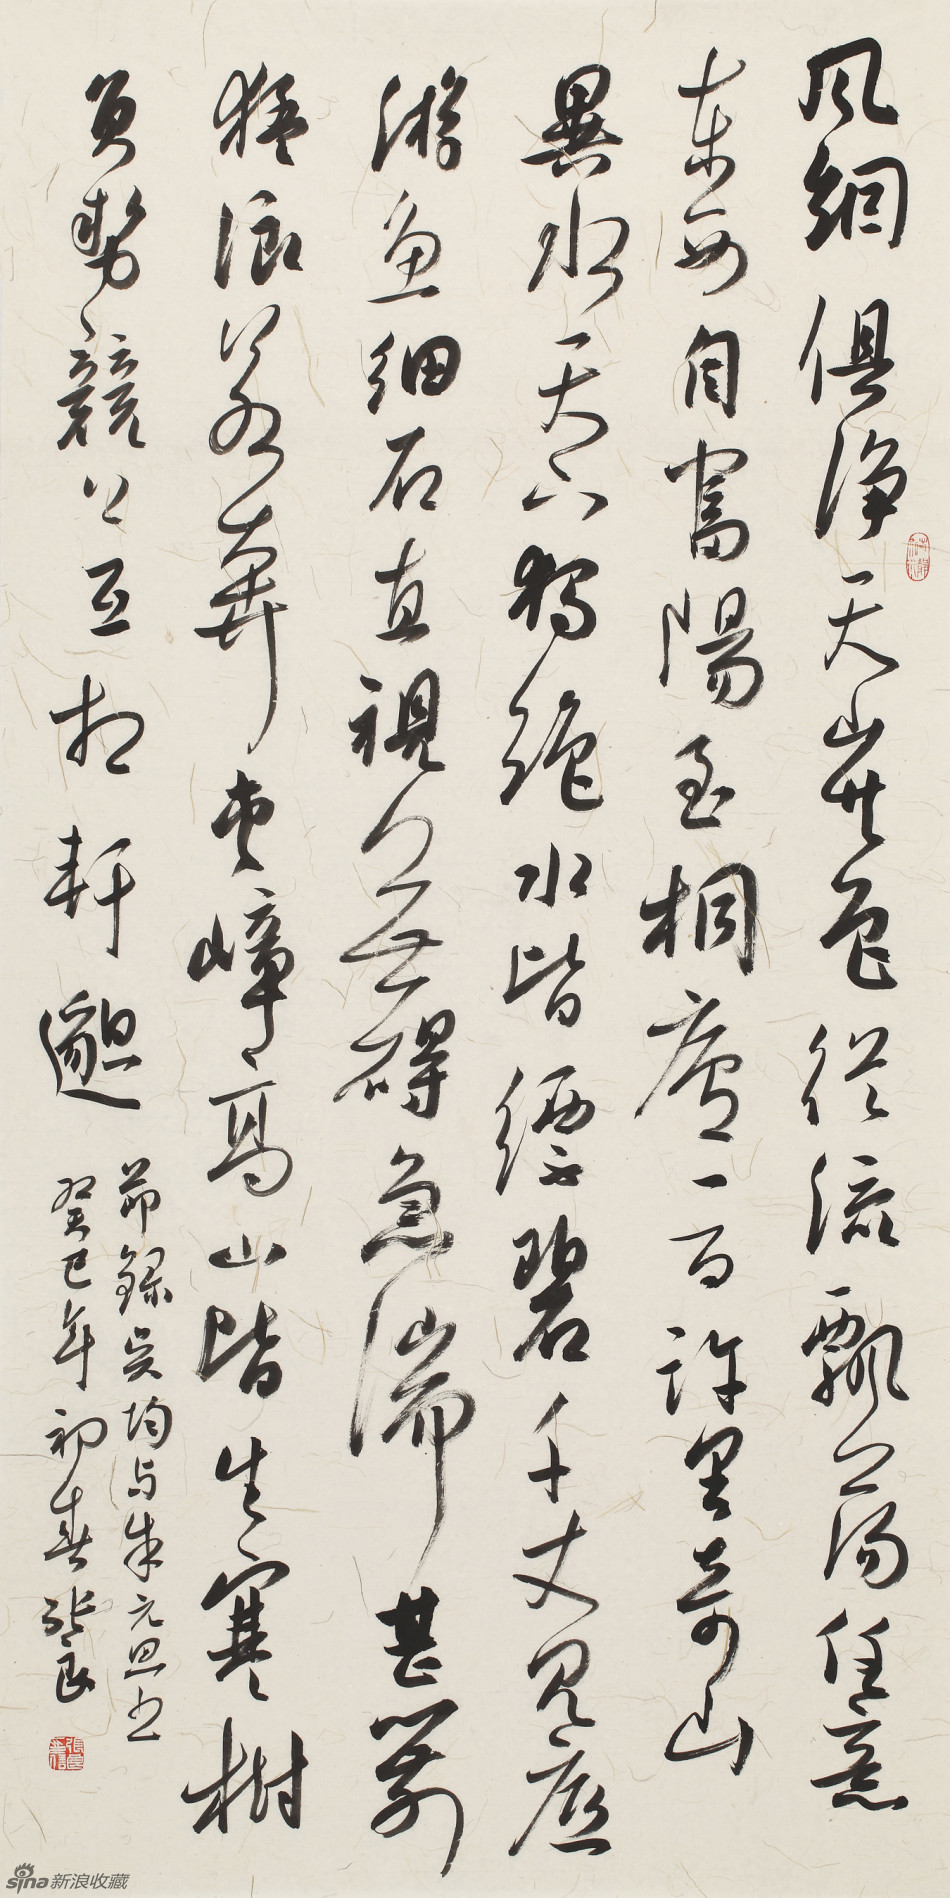 風烟俱淨天山共色從流飄蕩任意
東西自富陽至桐廬一百許里奇山
異水天下獨絕水皆縹碧千丈見底
游魚細石直視無礙急湍甚箭
猛浪若奔夾嶂高山皆生寒樹
負勢競上互相軒邈
節錄吳均与朱元思書
癸巳年初春張良
sina新浪收藏